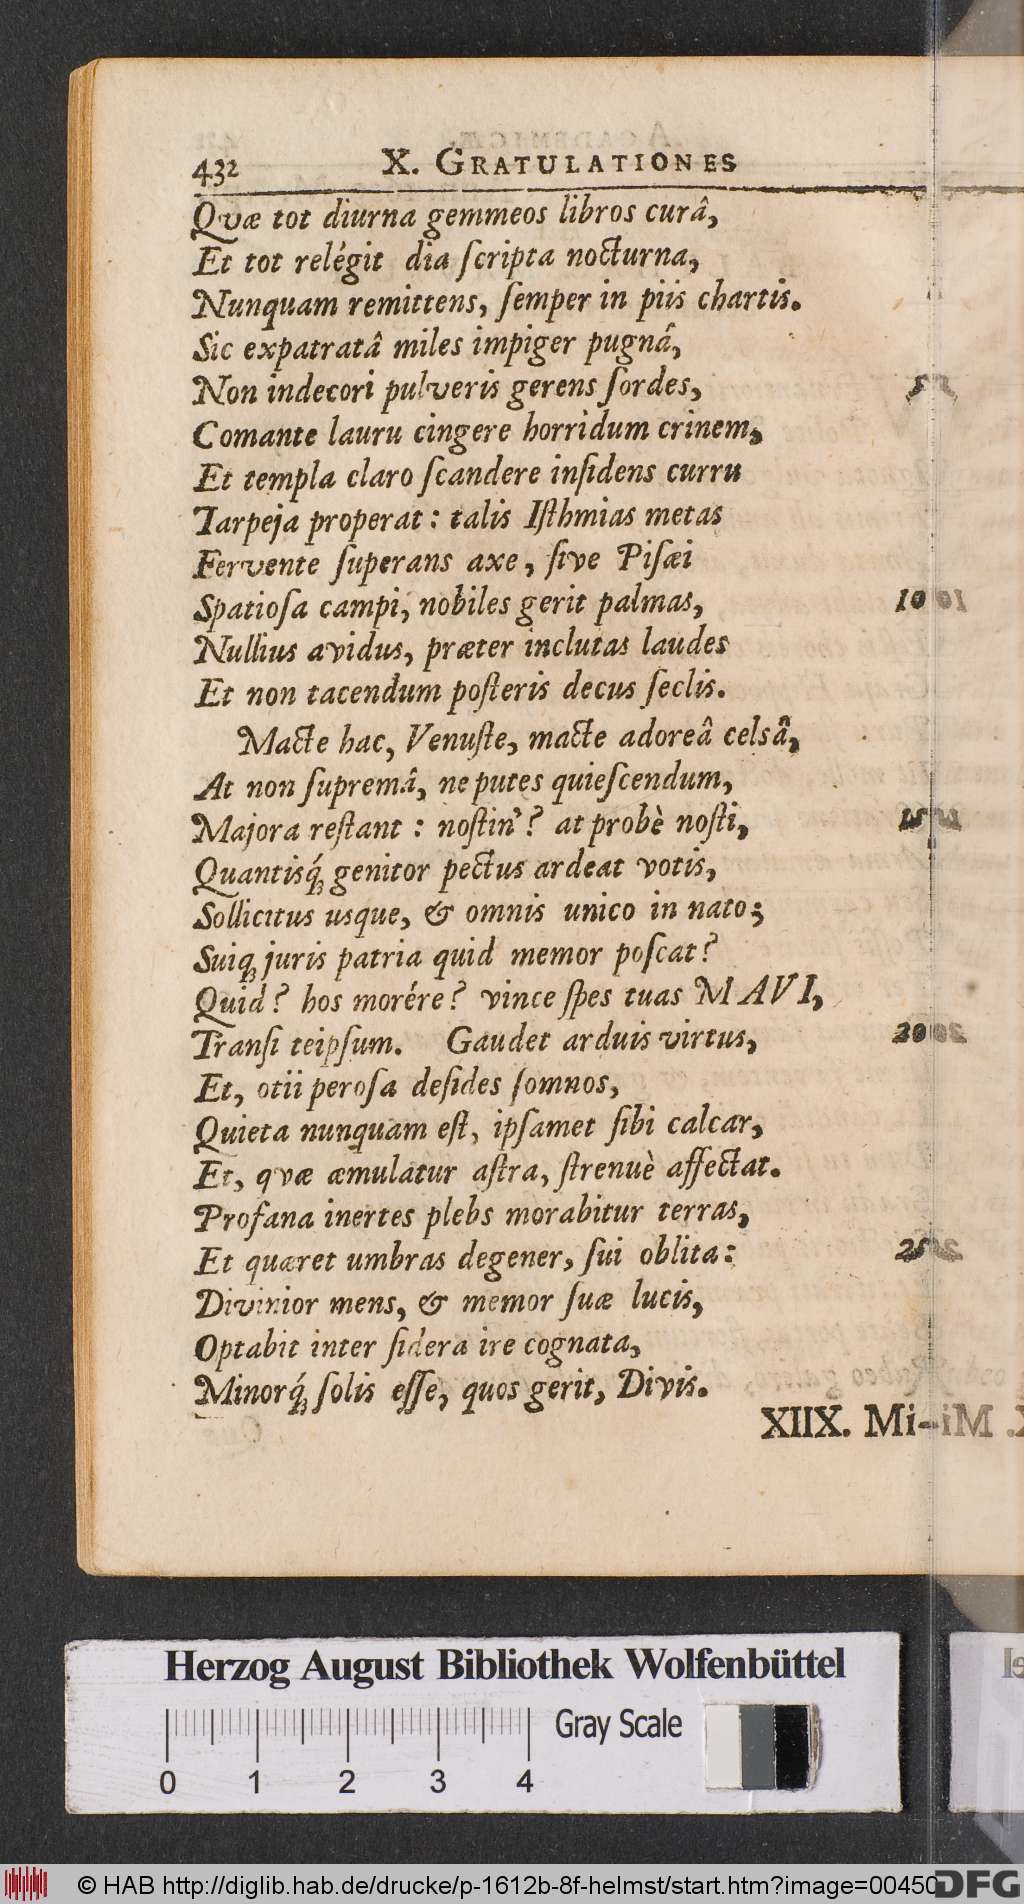 432 X. GRATULATIONES
Qvæ tot diurna gemmeos libros curâ,
Et tot relégit dia ſcripta nocturna,
Nunquam remittens, ſemper in piis chartis.
Sic expatratâ miles impiger pugnâ,
Non indecori pulveris gerens ſordes, 5
Comante lauru cingere horridum crinem,
Et templa claro ſcandere inſidens curru
Tarpeja properat: talis Iſthmias metas
Fervente ſuperans axe, ſive Piſæi
Spatioſa campi, nobiles gerit palmas, 10
Nullius avidus, præter inclutas laudes
Et non tacendum poſteris decus ſeclis.
Macte hac, Venuſte, macte adoreâ celsâ,
At non ſupremâ, ne putes quieſcendum,
Majora reſtant: noſtin'? at probè noſti, 15
Quantisq́; genitor pectus ardeat votis,
Sollicitus usque, & omnis unico in nato;
Suiq; juris patria quid memor poſcat?
Quid? hos morére? vince ſpes tuas MAVI,
Tranſi teipſum. Gaudet arduis virtus, 20
Et, otii peroſa deſides ſomnos,
Quieta nunquam eſt, ipſamet ſibi calcar,
Et, qvæ æmulatur aſtra, ſtrenuè affectat.
Profana inertes plebs morabitur terras,
Et quæret umbras degener, ſui oblita: 25
Divinior mens, & memor ſuæ lucis,
Optabit inter ſidera ire cognata,
Minorq́; ſolis eſſe, quos gerit, Divis.
XIIX. Mi-
Herzog August Bibliothek Wolfenbüttel
Gray Scale
0 1 2 3 4
© HAB http://diglib.hab.de/drucke/p-1612b-8f-helmst/start.htm?image=00450
DFG